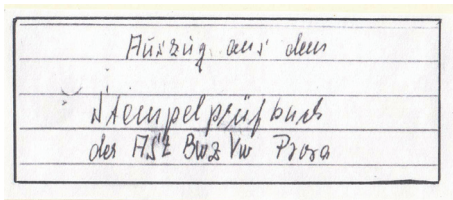 Auszug aus dem
Stempelprüfbuch
der ASt Bwz Vw Prora